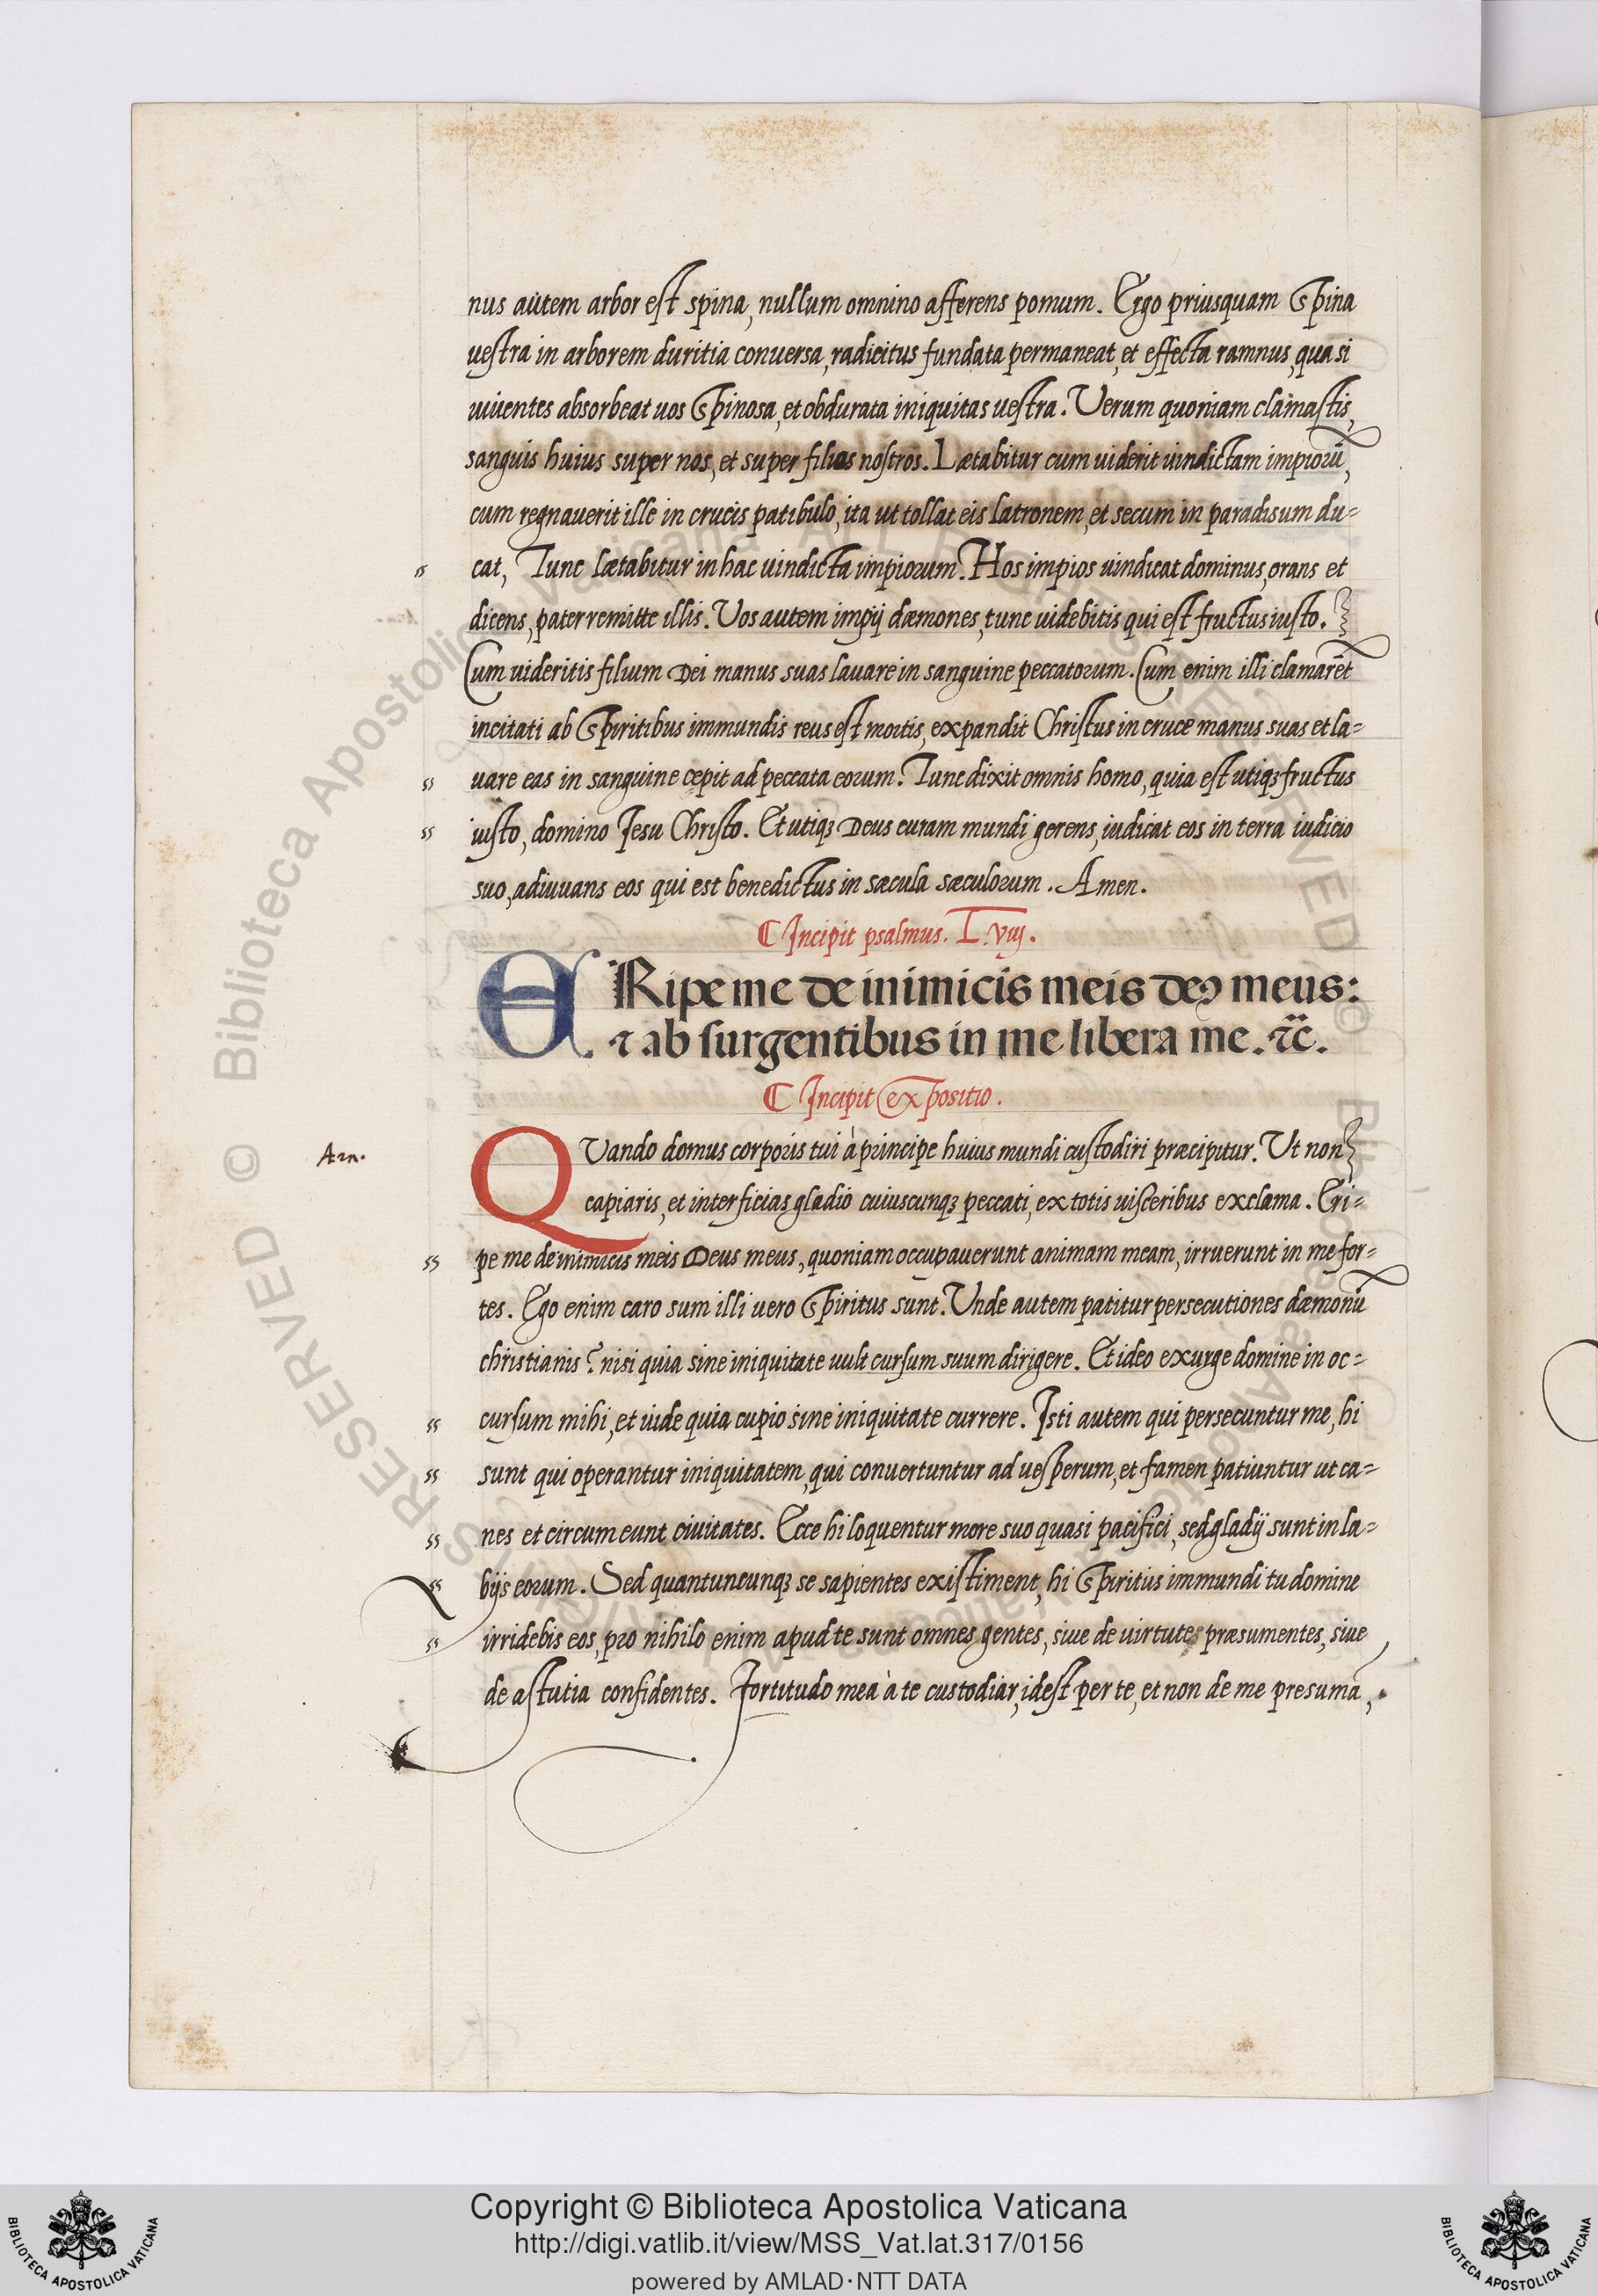 nus autem arbor est spina, nullum omnino afferens pomum. Ergo priusquam spina
uestra in arborem duritia conuersa, radicitus fundata permaneat, et effecta ramnus, quasi
uiuentes absorbeat uos spinosa, et obdurata iniquitas uestra. Uerum quoniam clamastis,
sanguis huius super nos, et super filios nostros. Lætabitur cum uiderit uindictam impiorū,
cum regnauerit ille in crucis patibulo, ita ut tollat eis latronem, et secum in paradisum du=
cat, Tunc lætabitur in hac uindicta impiorum. Hos impios uindicat dominus, orans et
dicens, pater remitte illis. Uos autem impij dæmones, tunc uidebitis qui est fructus iusto.
Cum uideritis filium Dei manus suas lauare in sanguine peccatorum. Cum enim illi clamarēt
incitati ab spiritibus immundis reus est mortis, expandit Christus in cruce manus suas et la=
uare eas in sanguine cepit ad peccata eorum. Tunc dixit omnis homo, quia est utiqꝫ fructus
iusto, domino Jesu Christo. Et utiqꝫ Deus curam mundi gerens, iudicat eos in terra iudicio
suo, adiuuans eos qui est benedictus in sæcula sæculorum. Amen.
Incipit psalmus. L.viij.
ERipe me de inimicis meis deꝰ meus:
⁊ ab surgentibus in me libera me. ⁊c̄.
Incipit expositio.
Arn.
QVando domus corporis tui à principe huius mundi custodiri præcipitur. Ut non
capiaris, et interficias gladio cuiuscunqꝫ peccati, ex totis uisceribus exclama. Eri=
pe me de inimicis meis Deus meus, quoniam occupauerunt animam meam, irruerunt in me for=
tes. Ego enim caro sum illi uero spiritus sunt. Unde autem patitur persecutiones dæmonū
christianis? nisi quia sine iniquitate uult cursum suum dirigere. Et ideo exurge domine in oc=
cursum mihi, et uide quia cupio sine iniquitate currere. Isti autem qui persecuntur me, hi
sunt qui operantur iniquitatem, qui conuertuntur ad uesperum, et famen patiuntur ut ca=
nes et circumeunt ciuitates. Ecce hi loquentur more suo quasi pacifici, sed gladij sunt in la=
bijs eorum. Sed quantuncunqꝫ se sapientes existiment, hi spiritus immundi tu domine
irridebis eos, pro nihilo enim apud te sunt omnes gentes, siue de uirtute præsumentes, siue
de astutia confidentes. Fortitudo mea à te custodiar, idest per te, et non de me presumā,
Copyright © Biblioteca Apostolica Vaticana
http://digi.vatlib.it/view/MSS_Vat.lat.317/0156
powered by AMLAD·NTT DATA
BIBLIOTECA APOSTOLICA VATICANA
BIBLIOTECA APOSTOLICA VATICANA